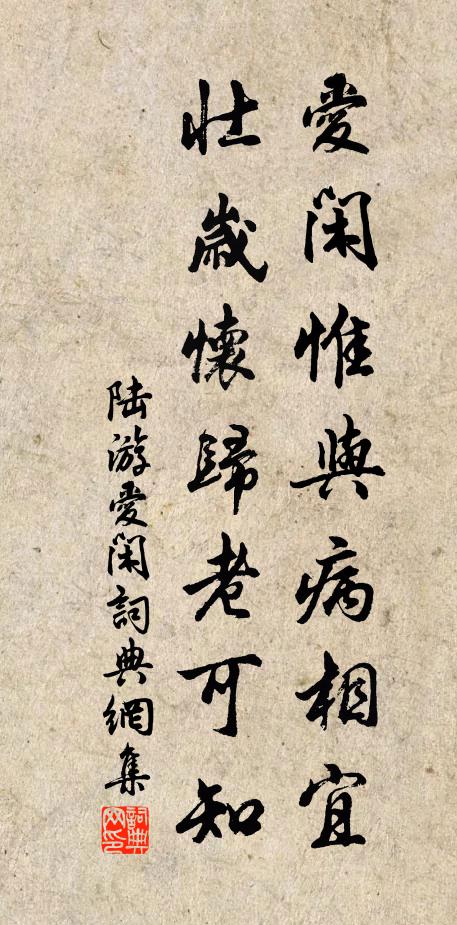 愛閑惟與病相宜
壯歲懷歸老可知
陸游愛閑詞典網集
詞典網印